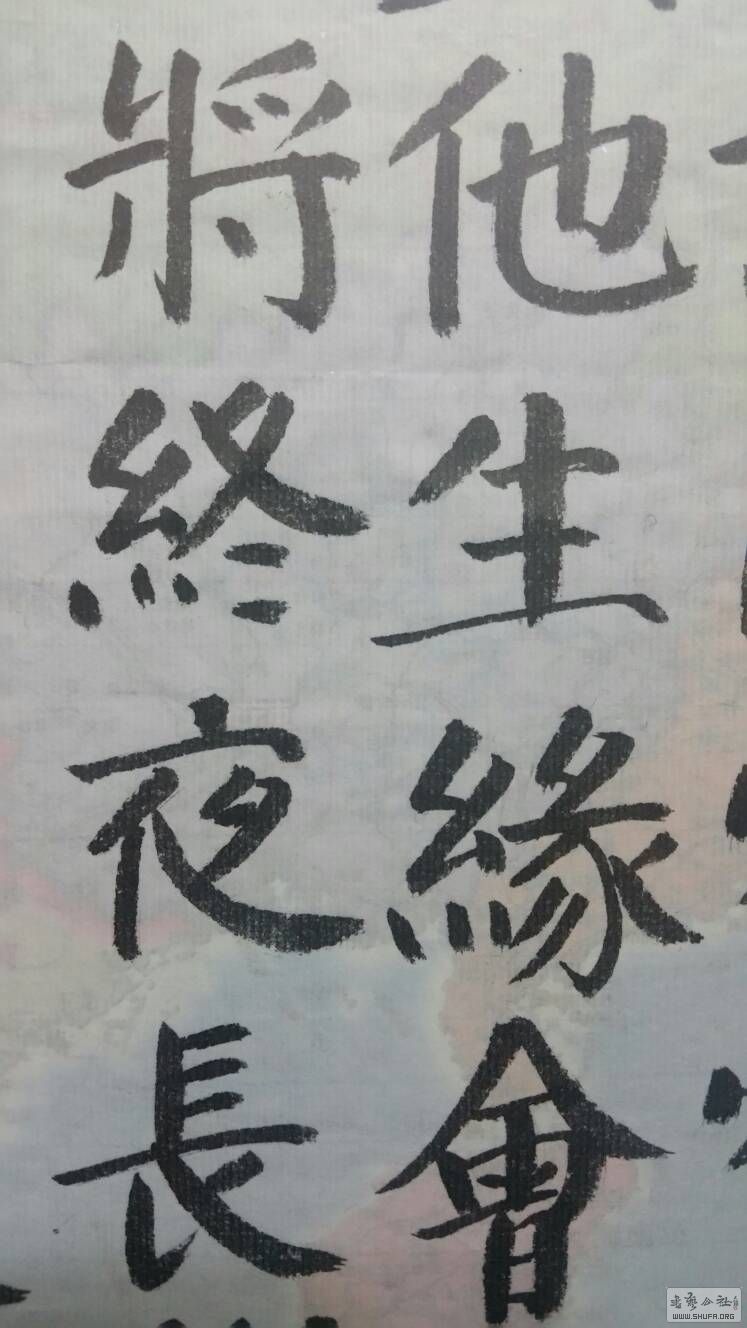 他生緣會
將終夜長
WWW.SHUFA.ORG